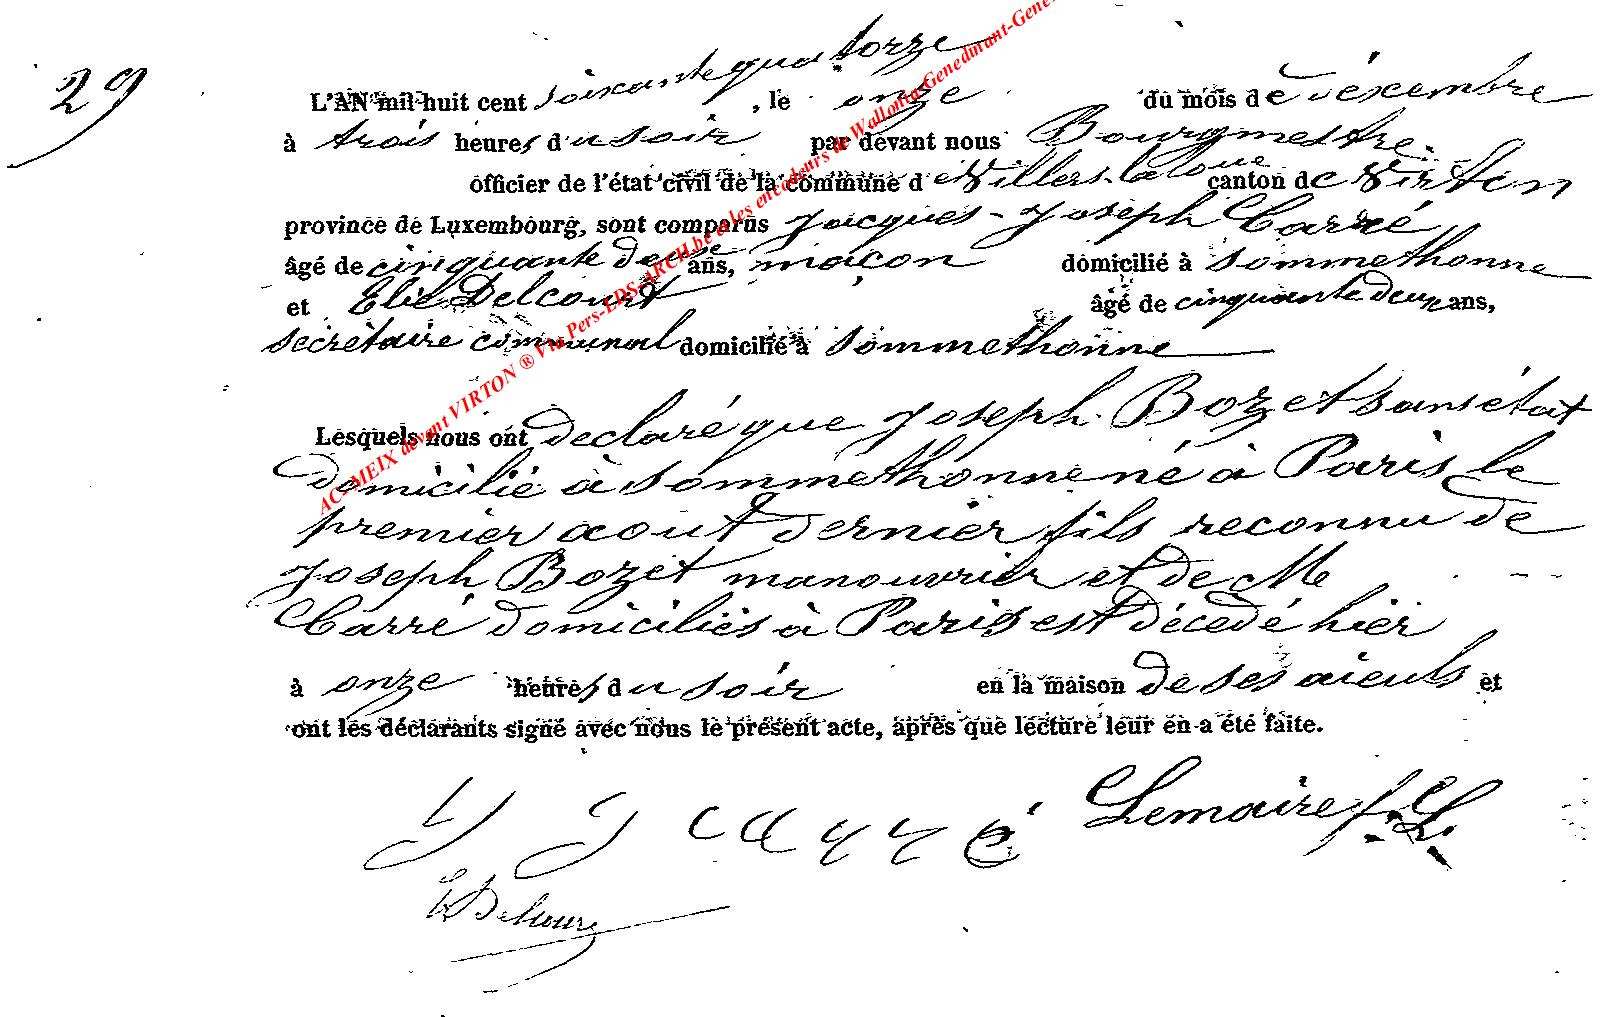 29
L'AN mil huit cent soixante quatorze, le onze du mois de décembre
à trois heures du soir par devant nous Bourgmestre
officier de l'état civil de la commune de Villers-la loue canton de Virton
province de Luxembourg, sont comparus Jacques-Joseph Carré
âgé de cinquante deux ans, maçon domicilié à Sommethonne
et Elie Delcourt âgé de cinquante deux ans,
secrétaire communal domicilié à Sommethonne
Lesquels nous ont declaré que Joseph Bozet sans état
domicilié à Sommethonne né à Paris le
premier aout dernier fils reconnu de
Joseph Bozet manouvrier et de M
Carré domiciliés à Paris est décedé hier
à onze heures du soir en la maison de ses aieuls et
ont les déclarants signé avec nous le présent acte, après que lecture leur en a été faite.
J J carré Lemaire f. L.
E Delcourt
AC-MEIX devant VIRTON ® Via Pers-LDS-ARCH.be et les encodeurs de Wallonia-Genedurant-Gene